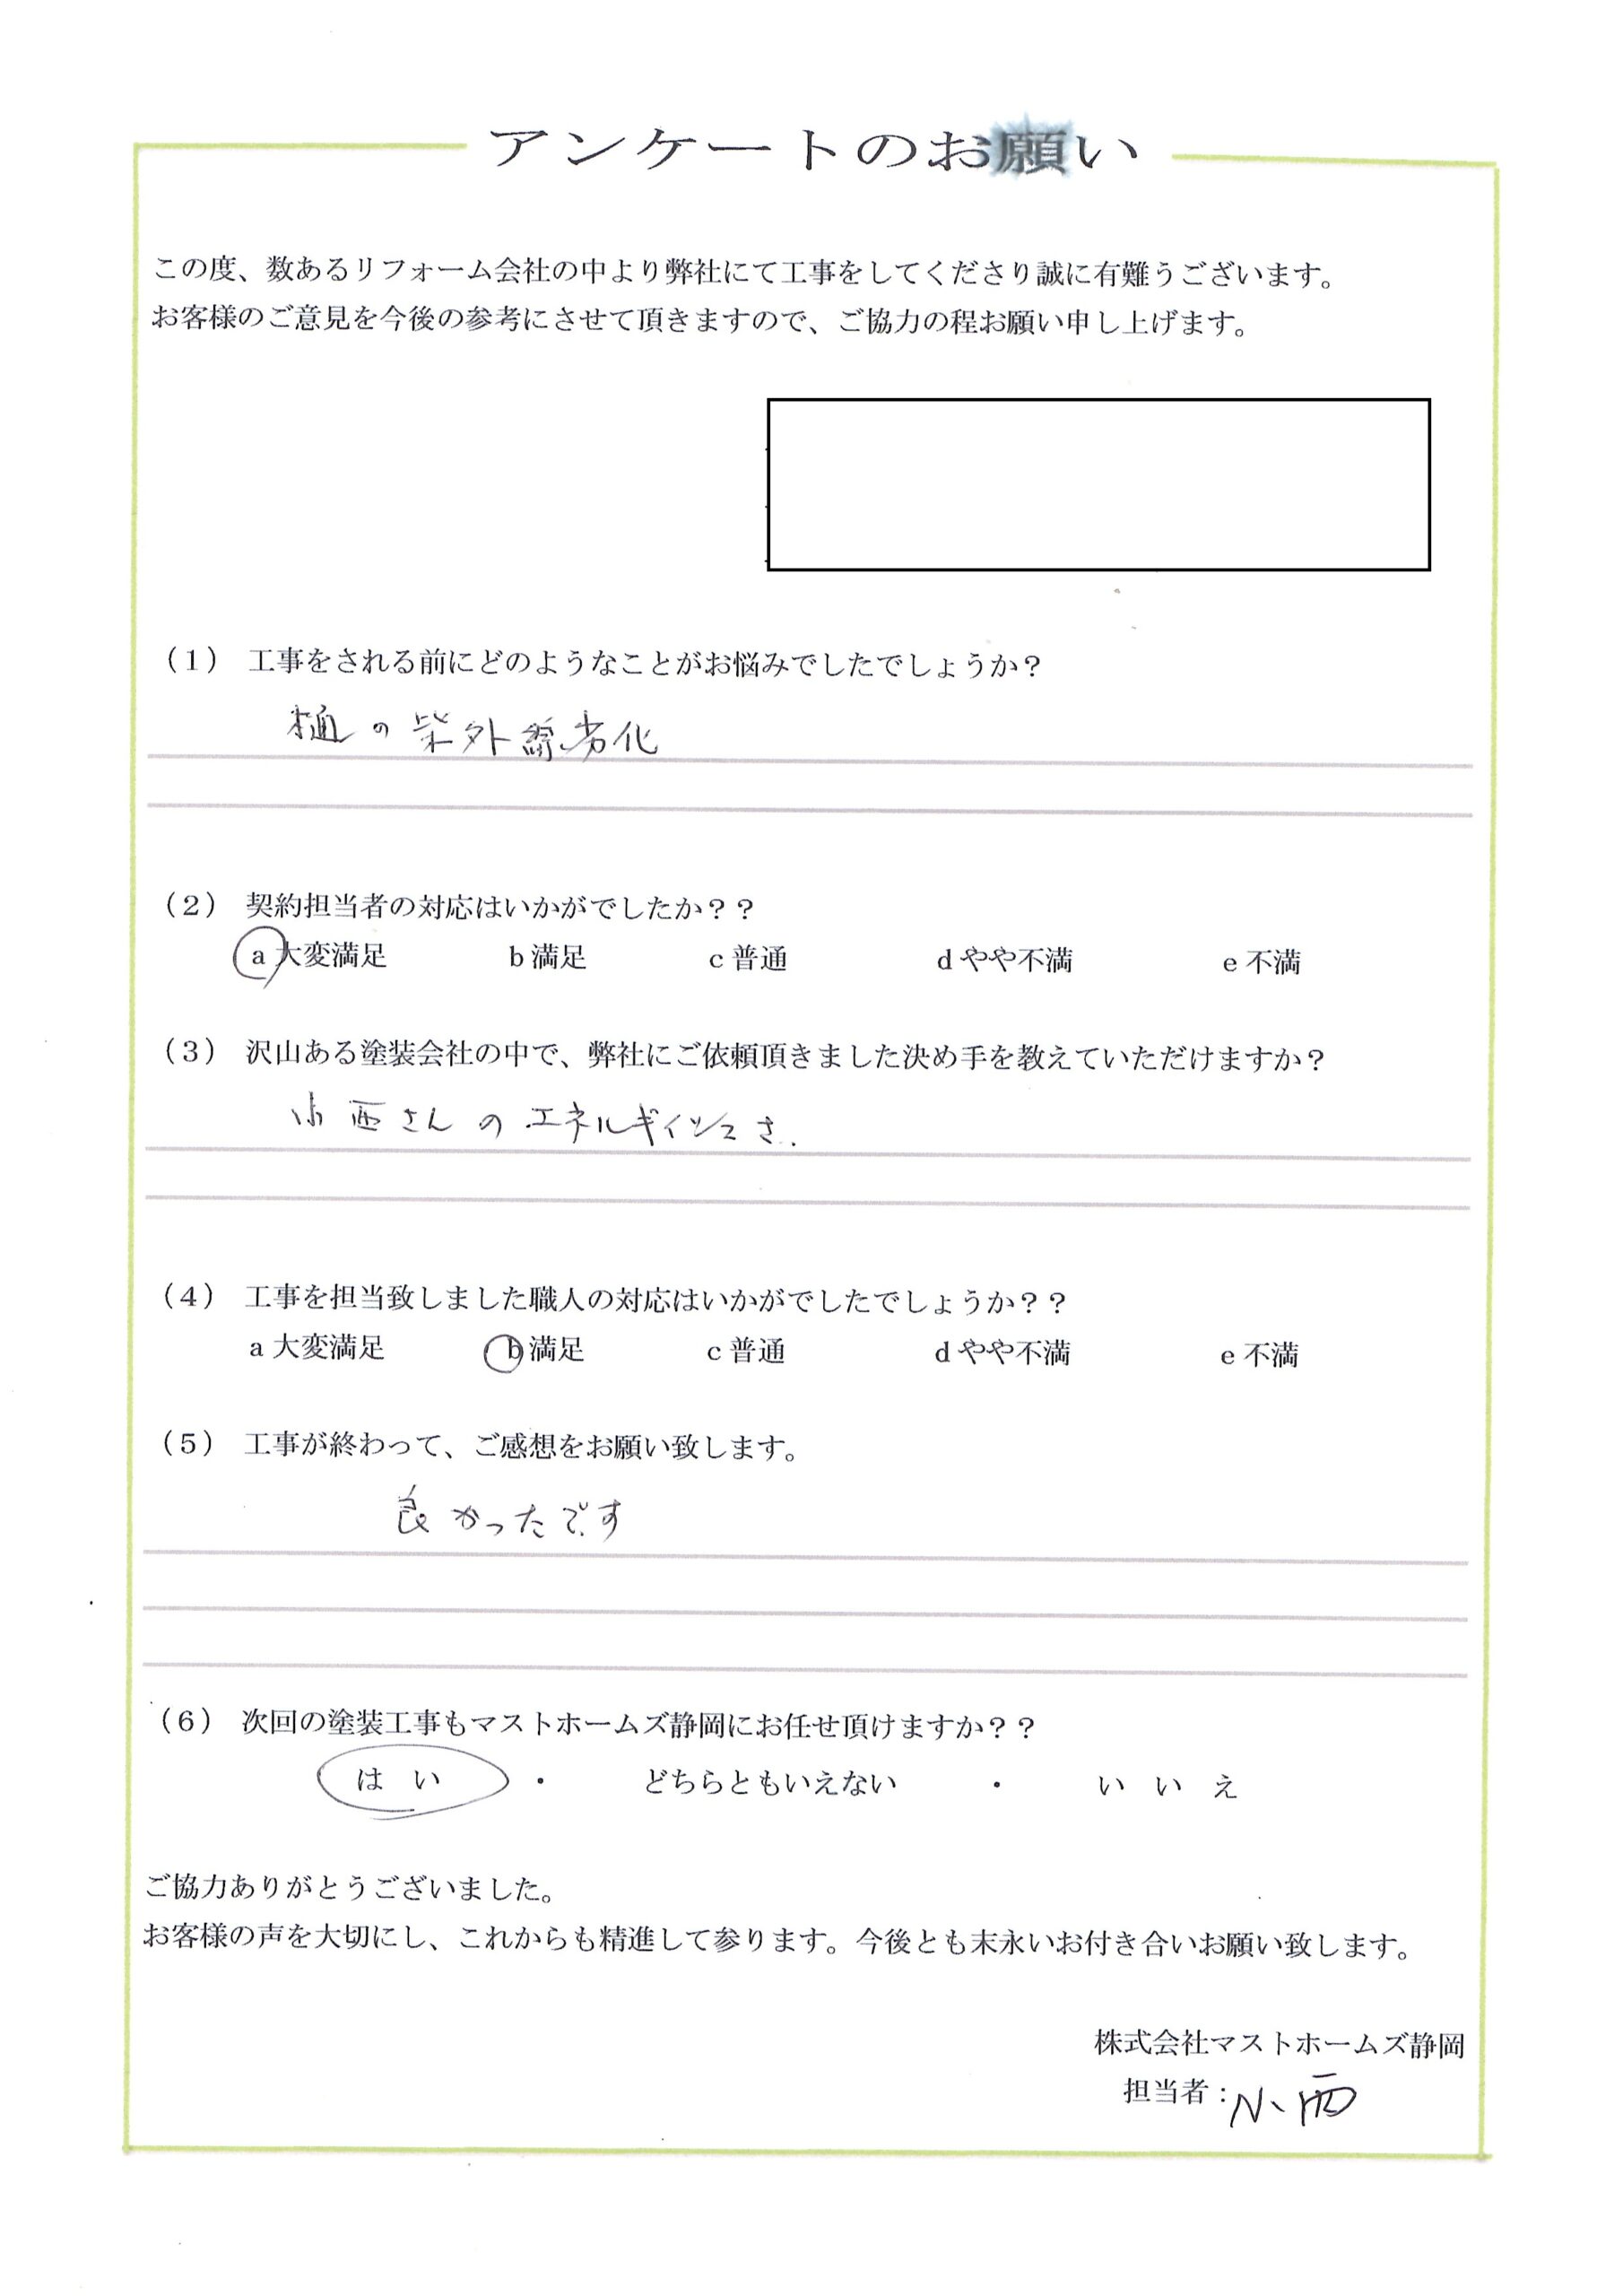 アンケートのお願い
この度、数あるリフォーム会社の中より弊社にて工事をしてくださり誠に有難うございます。
お客様のご意見を今後の参考にさせて頂きますので、ご協力の程お願い申し上げます。
（1） 工事をされる前にどのようなことがお悩みでしたでしょうか？
樋の紫外線劣化
（2） 契約担当者の対応はいかがでしたか？？
a 大変満足 b 満足 c 普通 d やや不満 e 不満
（3） 沢山ある塗装会社の中で、弊社にご依頼頂きました決め手を教えていただけますか？
小西さんのエネルギイッシュさ.
（4） 工事を担当致しました職人の対応はいかがでしたでしょうか？？
a 大変満足 b 満足 c 普通 d やや不満 e 不満
（5） 工事が終わって、ご感想をお願い致します。
良かったです
（6） 次回の塗装工事もマストホームズ静岡にお任せ頂けますか？？
は い ・ どちらともいえない ・ い い え
ご協力ありがとうございました。
お客様の声を大切にし、これからも精進して参ります。今後とも末永いお付き合いお願い致します。
株式会社マストホームズ静岡
担当者：小西